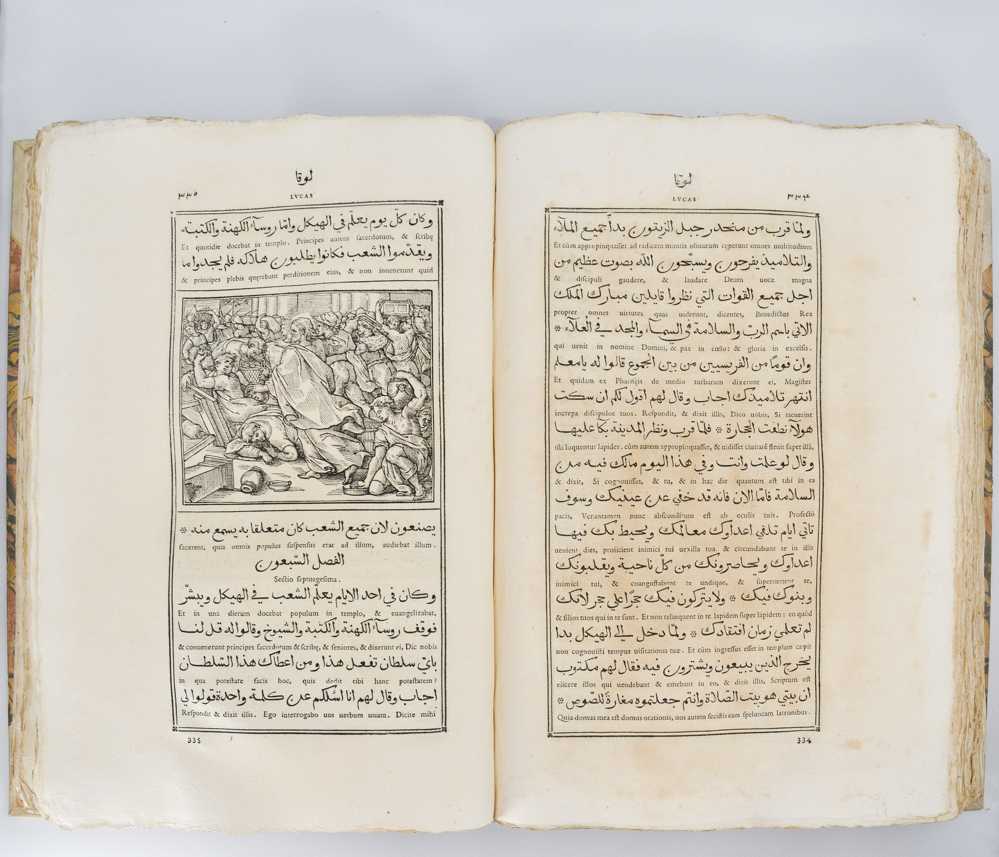 لوقا
LVCAS
٣٣٤
ولما قرب من منحدر جبل الزيتون بدأ جميع الملاء
Et cùm appropinquasset ad radicem montis oliuarum cœperunt omnes multitudines
والتلاميذ يفرحون ويسبّحون الله بصوت عظيم من
& discipuli gaudere, & laudare Deum uoce magna
اجل جميع القوات التي نظروا قايلين مبارك الملك
propter omnes uirtutes quas uiderunt, dicentes, Benedictus Rex
الاتي باسم الربّ والسلامة في السماء والمجد في العلاء *
qui uenit in nomine Domini, & pax in cœlo: & gloria in excelsis.
وان قومًا من الفريسيين من بين الجموع قالوا له يا معلم
Et quidam ex Pharisæis de medio turbarum dixerunt ei, Magister
انتهر تلاميذك اجاب وقال لهم اقول لكم ان سكت
increpa discipulos tuos. Respondit, & dixit illis, Dico uobis, Si tacuerint
هولاء نطقت الحجارة * فلما قرب ونظر المدينة بكا عليها
isti loquentur lapides. cùm autem appropinquasset, & uidisset ciuitatē fleuit super illā,
وقال لو علمت وانت وفي هذا اليوم مالك فيه من
& dixit, Si cognouisses, & tu, & in hac die quantum est tibi in ea
السلامة فامّا الان فانه قد خفي عن عينيك وسوف
pacis, Veruntamen nunc absconditum est ab oculis tuis. Profectò
تاتي ايام تلقي اعداوك معالمك ويحيط بك فيها
uenient dies, proiicient inimici tui uexilla tua, & circundabunt te in illis
اعداوك ويحاصرونك من كلّ ناحية ويقلبونك
inimici tui, & coangustabunt te undique, & subuertent te,
وبنوك فيك * ولا يتركون فيك حجرًا علي حجر لانك
& filios tuos qui in te sunt. Et non relinquent in te lapidem super lapidem: eo quòd
لم تعلمي زمان افتقادك * ولما دخل الي الهيكل بدا
non cognouisti tempus uisitationis tuæ. Et cùm ingressus esset in templum cœpit
يخرج الذين يبيعون ويشترون فيه فقال لهم مكتوب
eiicere illos qui uendebant & emebant in eo, & dixit illis, Scriptum est
ان بيتي هو بيت الصّلاة وانتم جعلتموه مغارة للصوص *
Quia domus mea est domus orationis, uos autem fecistis eam speluncam latronibus.
334
لوقا
LVCAS
٣٣٥
وكان كلّ يوم يعلّم في الهيكل وامّا روساء الكهنة والكتبة
Et quotidie docebat in templo. Principes autem sacerdotum, & scribę
ويقدّموا الشعب فكانوا يطلبون هلاكه فلم يجدوا ما
& principes plebis quęrebant perditionem eius, & non inuenerunt quid
يصنعون لان جميع الشعب كان متعلقا به يسمع منه *
facerent, quia omnis populus suspensus erat ad illum, audiebat illum.
الفصل السّبعون
Sectio septuagesima.
وكان في احد الايام يعلّم الشعب في الهيكل ويبشّر
Et in una dierum docebat populum in templo, & euangelizabat,
فوقف روساء الكهنة والكتبة والشيوخ وقالوا له قل لنا
& conuenerunt principes sacerdotum & scribę, & seniores, & dixerunt ei, Dic nobis
بايّ سلطان تفعل هذا ومن اعطاك هذا السّلطان
in qua potestate facis hoc, quis dedit tibi hanc potestatem?
اجاب وقال لهم انا اسئلكم عن كلمة واحدة قولوا لي
Respondit & dixit illis. Ego interrogabo uos uerbum unum. Dicite mihi
335